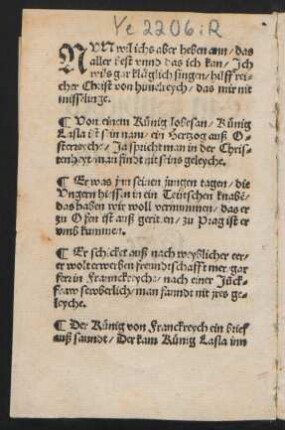 Ye 2206:R
NUN wil ichs aber heben ann / das
aller best vnnd das ich kan / Ich
wils gar klüglich singen / hilff rei-
cher Christ von himelreych / das mir nit
misslinge.
¶ Von einem Künig lobesan / Künig
Lasla ist sein nam / ein Hertzog auß O-
sterreyche / Ja spricht man in der Chris-
tenheyt / man findt nit seins geleyche.
¶ Er was inn seinen jungen tagen / die
Ungern hiessen in ein Teütschen knabe /
das haben wir woll vernummen / das er
zu Ofen ist auß geritten / zu Prag ist er
vmb kummen.
¶ Er schicket auß nach weyßlicher eer /
er wolt erwerben freundtschafft mer / gar
ferr in Franckreyche / nach einer Jück-
fraw seuberlich / man fanndt nit jres ge-
leyche.
¶ Der Künig von Franckreych ein brieff
auß sanndt / Der kam Künig Lasla inn